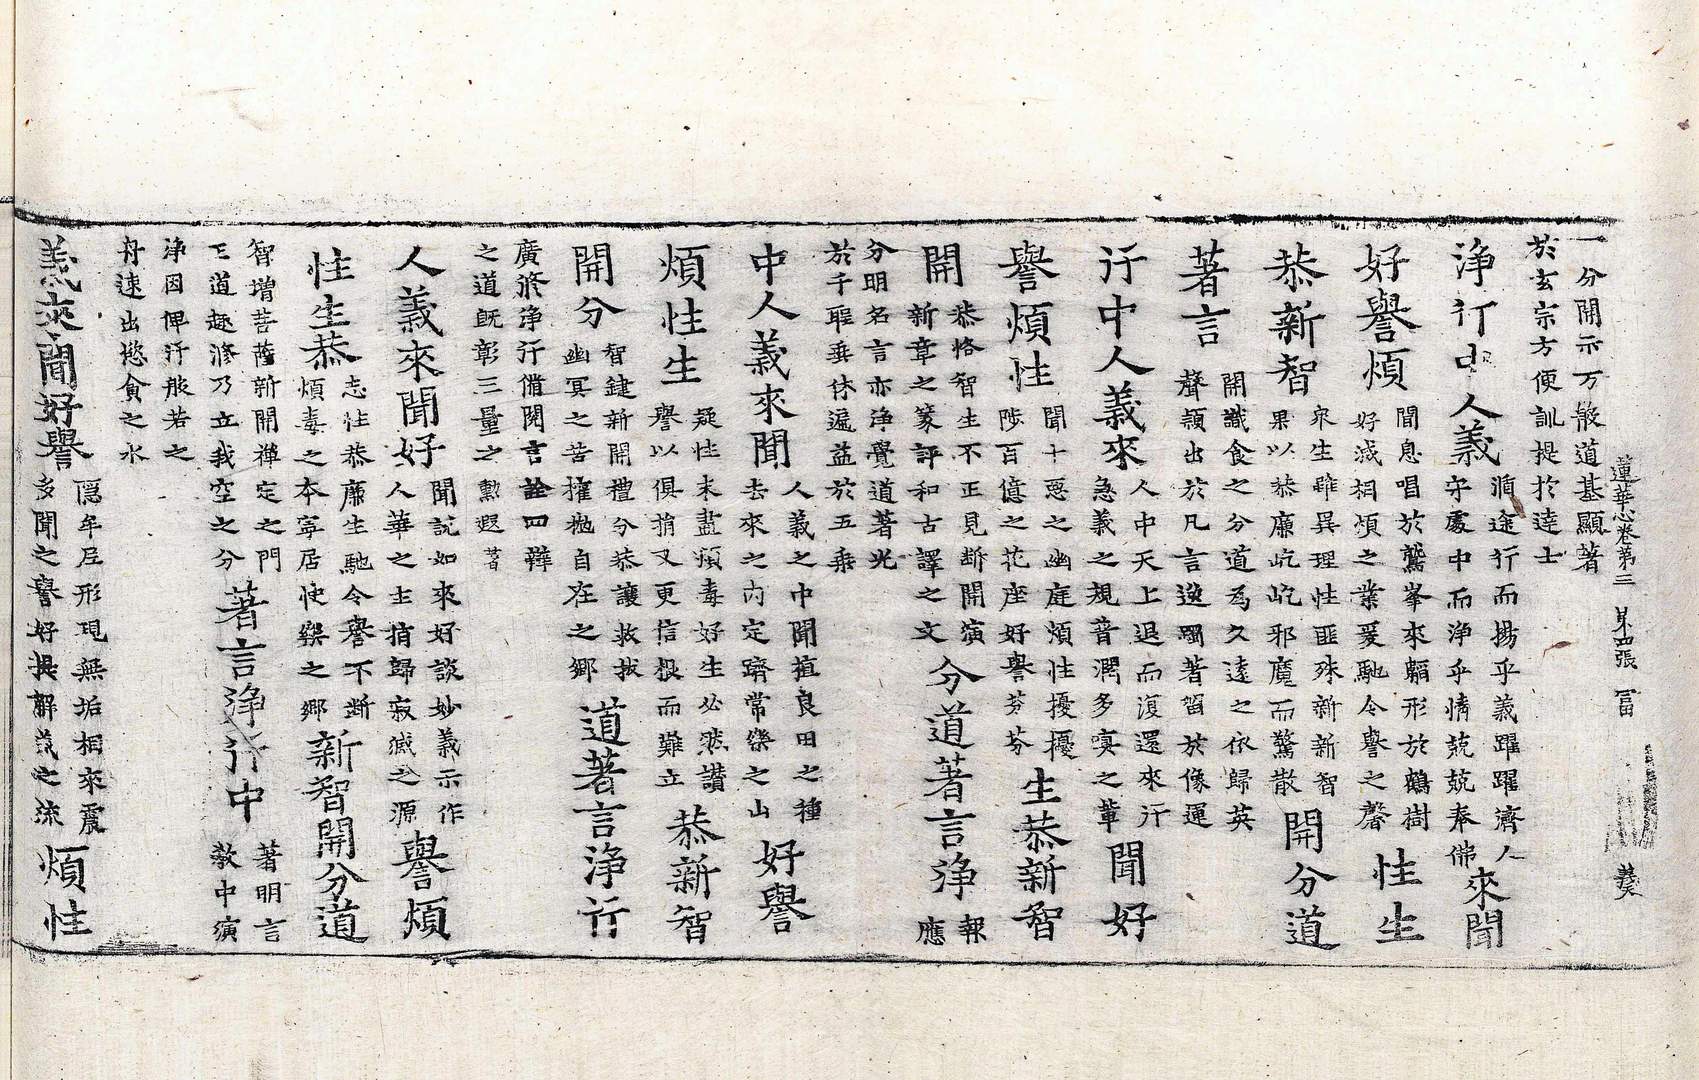 一分開示万般道基顯著
於玄宗方便訓提於達士
蓮華心卷第三 第四張 冨
淨行中人義
涌途行而揚乎義躍躍濟人
守處中而淨乎情兢兢奉佛
來聞
好譽煩
聞息唱於鷲峯來軀形於鶴樹
好滅相煩之業爰馳令譽之馨
性生
恭新智
衆生雖異理性匪殊新新智
果以恭廉屹屹邪魔而驚散
開分道
著言
開識食之分道爲久遠之依歸英
聲顯出於凡言逸躅著習於像運
行中人義來
人中天上退而復還來行
急義之規普潤多嗔之輩
聞好
譽煩性
聞十惡之幽庭煩性擾擾
陟百億之花座好譽芬芬
生恭新智
開
恭恪智生不正見斷開演
新章之篆評和古譯之文
分道著言淨
報
應
分明名言亦淨覺道著光
於千聖垂休遍益於五乘
中人義來聞
人義之中聞植良田之種
去來之內定躋常樂之山
好譽
煩性生
疑性未盡煩毒好生必然讚
譽以俱捐又更信根而難立
恭新智
開分
智鍵新開禮分恭讓救拔
幽冥之苦擢拋自在之鄉
道著言淨行
廣修淨行備閱言詮四辯
之道旣彰三量之勳遐著
人義來聞好
聞說如來好談妙義示作
人華之主指歸寂滅之源
譽煩
性生恭
志性恭廉生馳令譽不斷
煩毒之本寧居快樂之鄉
新智開分道
智增菩薩新開禪定之門
三道趣修乃立我空之分
著言淨行中
著明言
教中演
淨因俾行般若之
舟速出慾貪之水
義來聞好譽
隱牟尼形現無垢相來震
多聞之譽好提解義之流
煩性